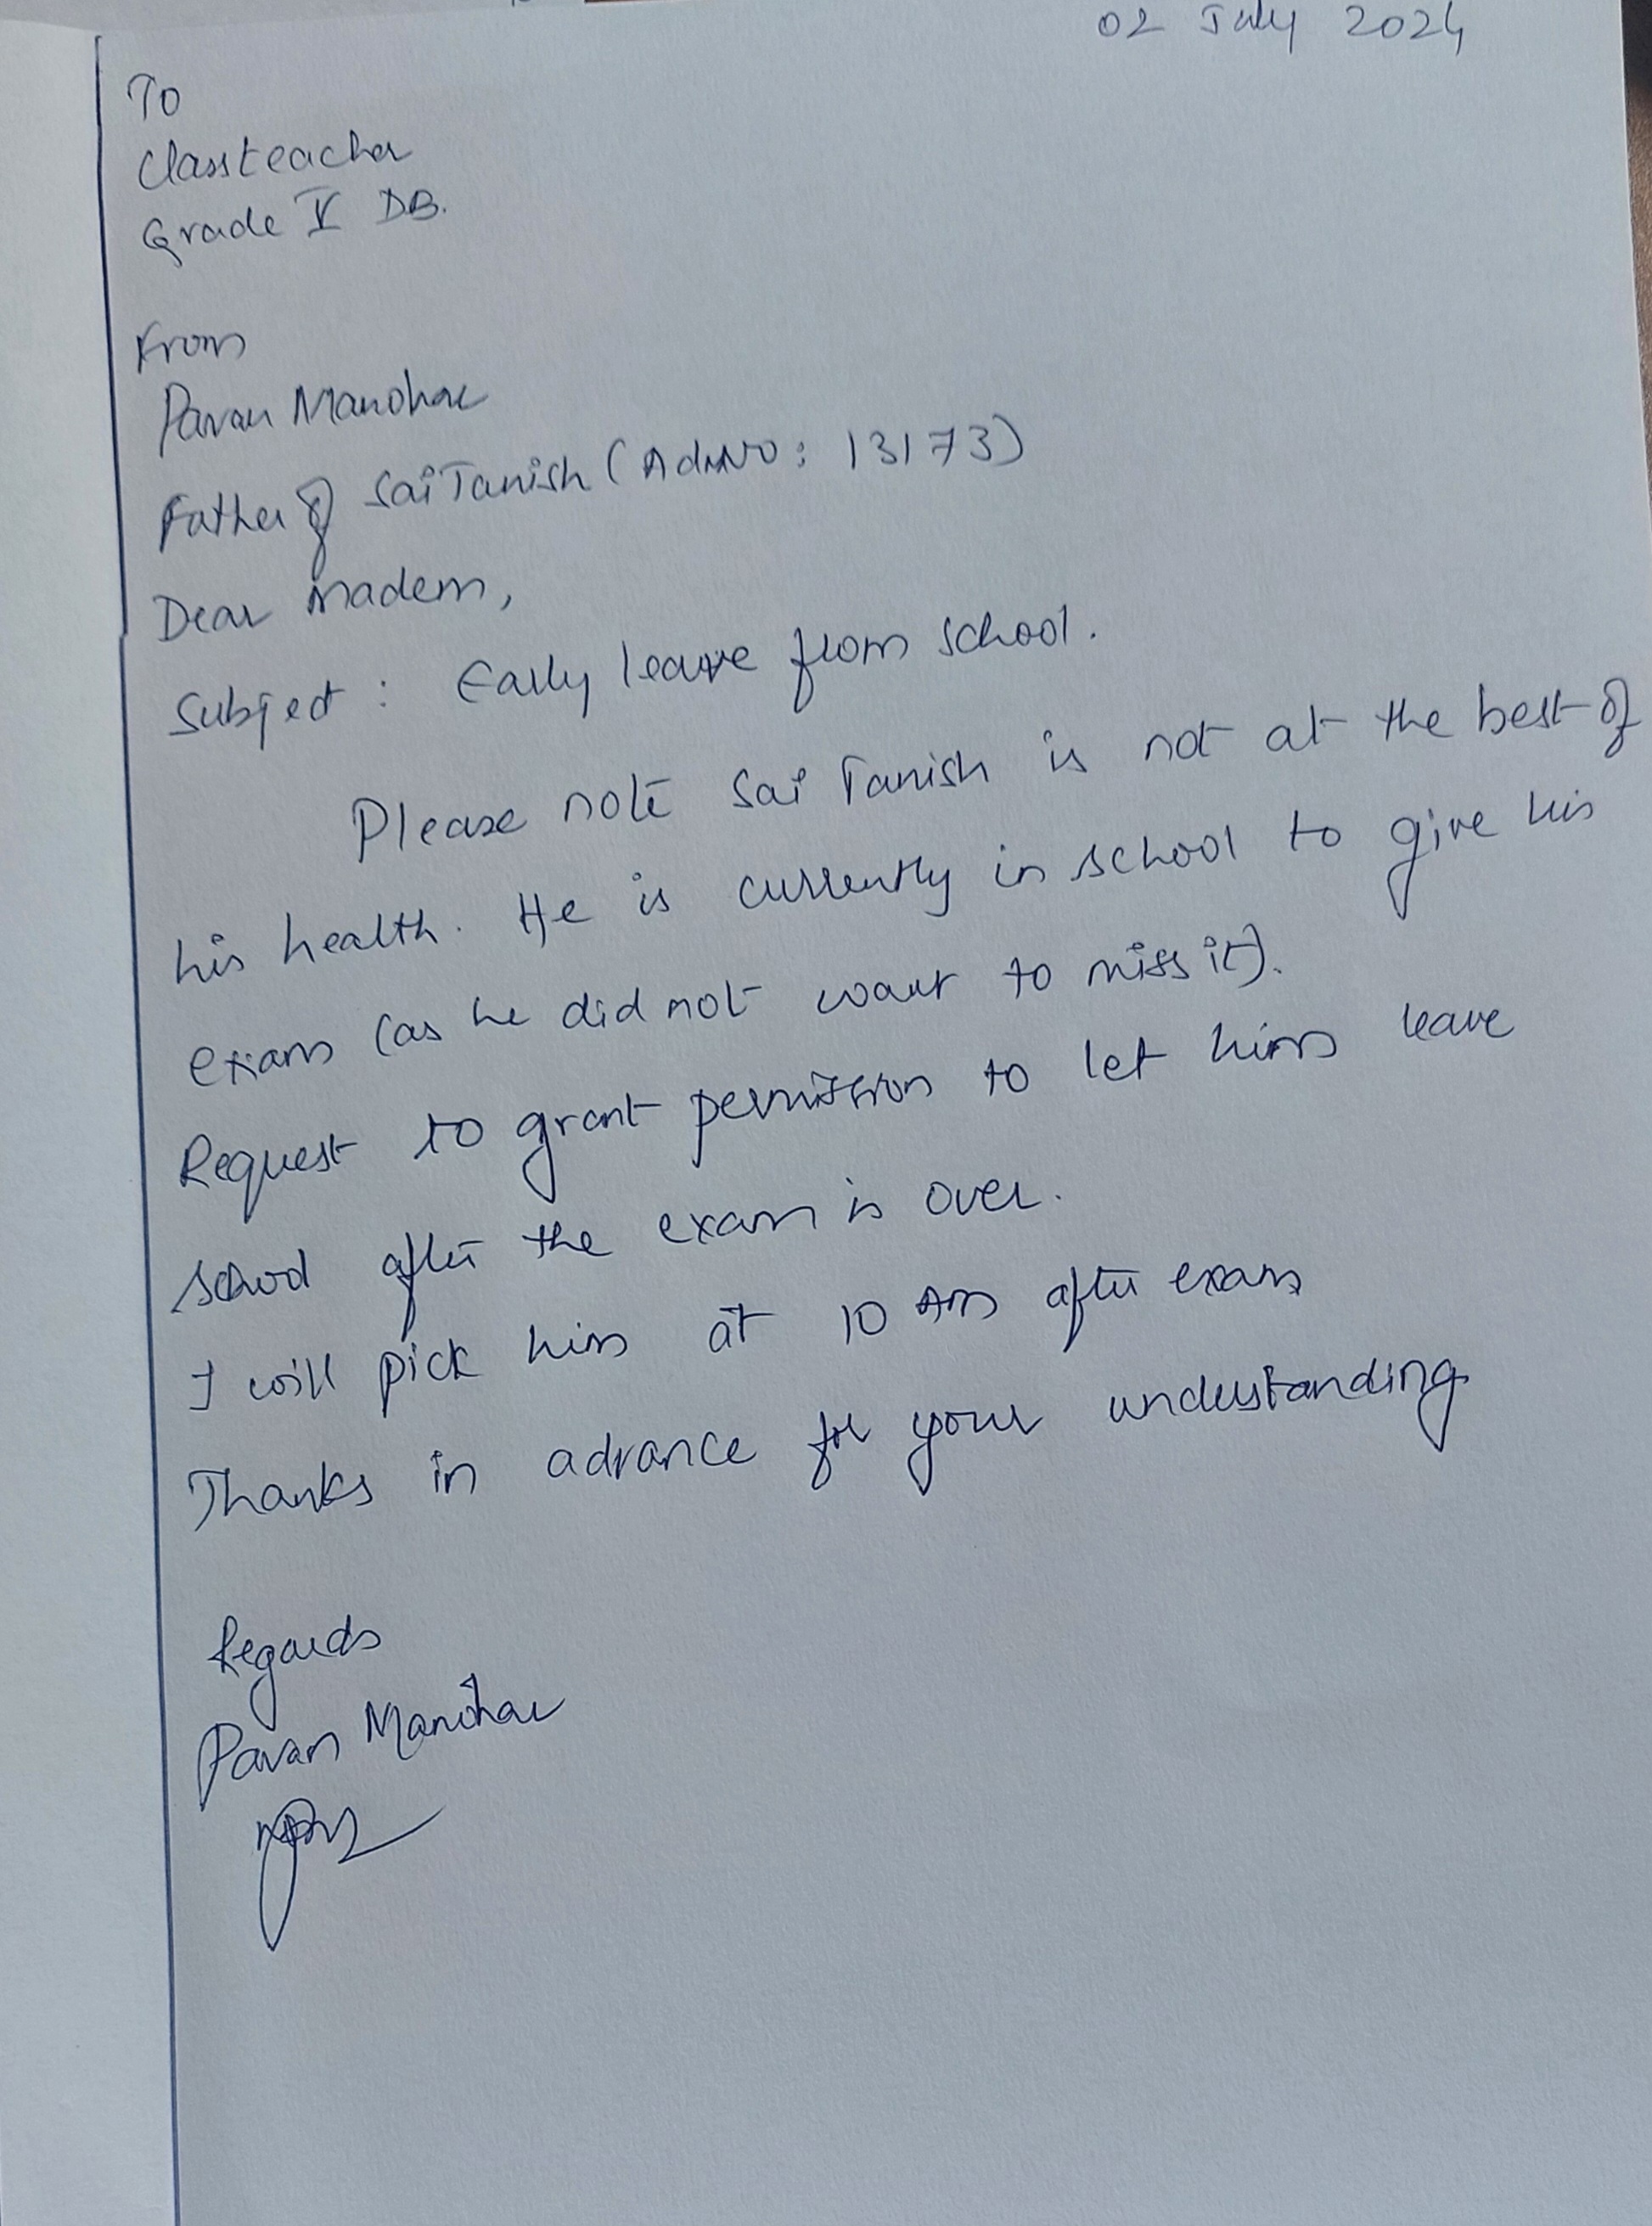 02 July 2024
To
Classteacher
Grade V DB.
From
Pavan Manohar
Father of Sai Tanish (AdmNo: 13173)
Dear Madem,
Subject : Early leave from school.
Please note Sai Tanish is not at the best of
his health. He is currently in school to give his
exam (as he did not want to miss it).
Request to grant permission to let him leave
school after the exam is over.
I will pick him at 10 Am after exam
Thanks in advance for your understanding
Regards
Pavan Manohar